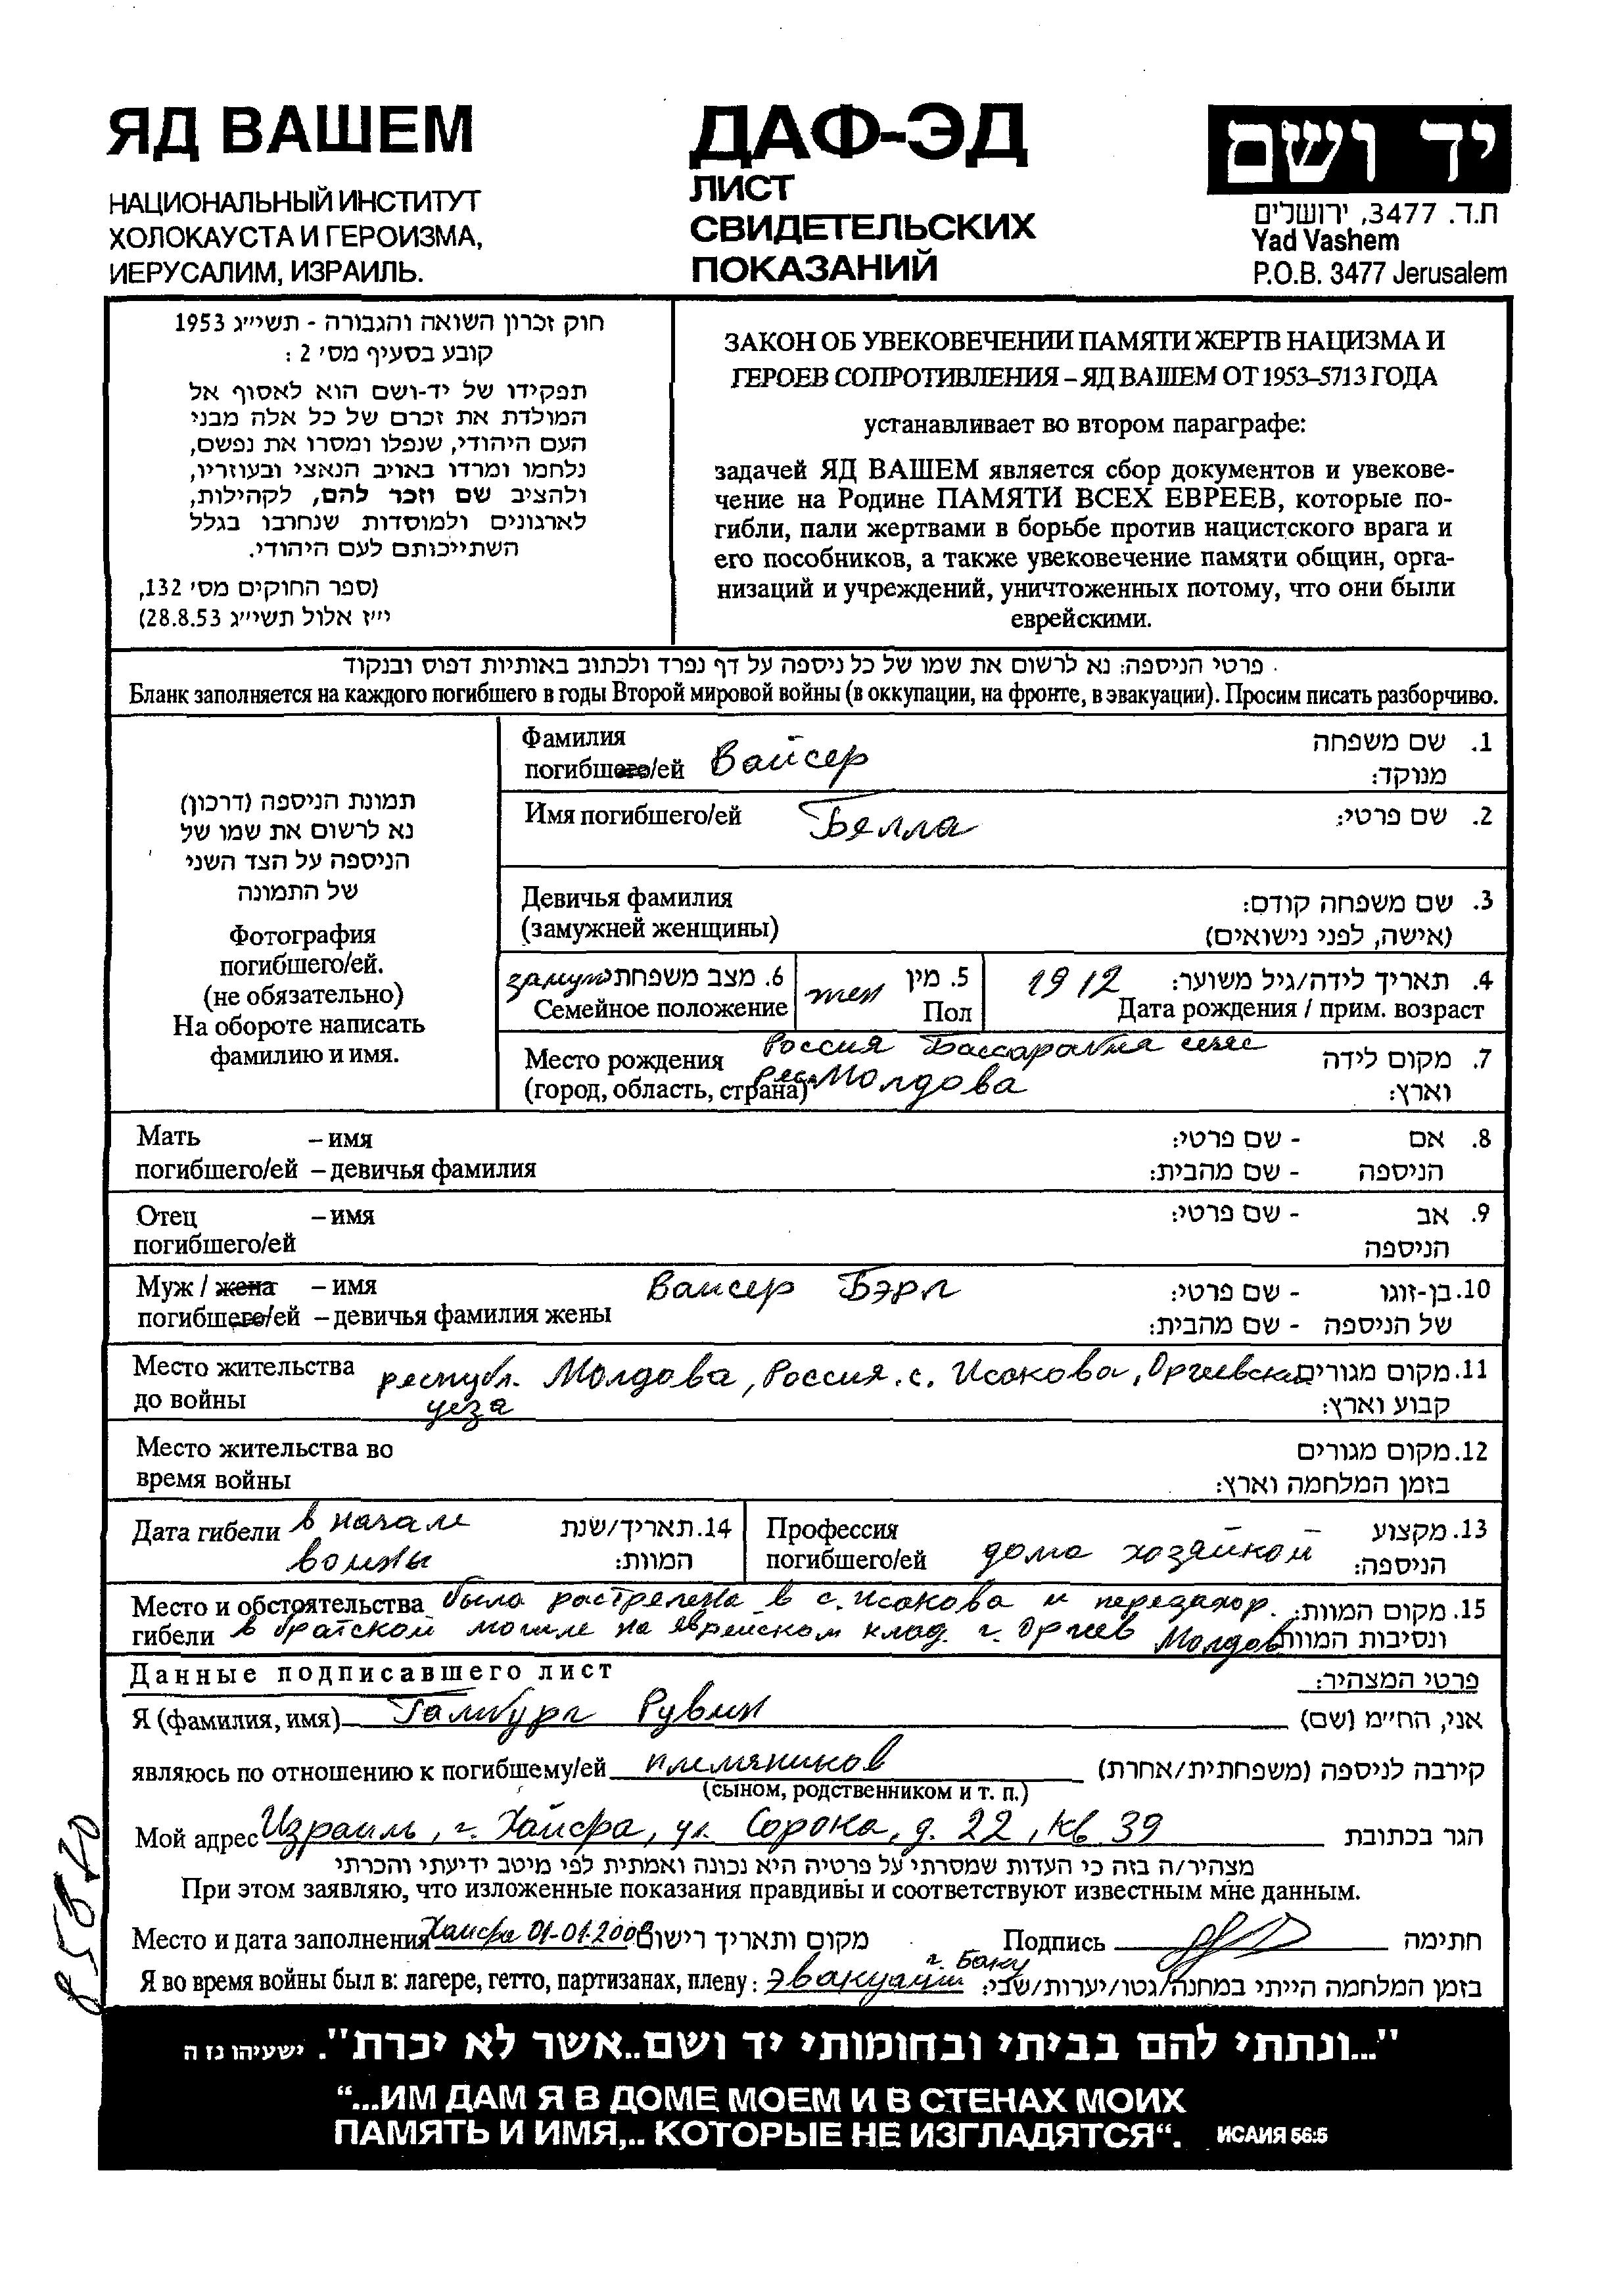 ЯД ВАШЕМ
НАЦИОНАЛЬНЫЙ ИНСТИТУТ
ХОЛОКАУСТА И ГЕРОИЗМА,
ИЕРУСАЛИМ, ИЗРАИЛЬ.
ДАФ-ЭД
ЛИСТ
СВИДЕТЕЛЬСКИХ
ПОКАЗАНИЙ
יד ושם
ת.ד. 3477, ירושלים
Yad Vashem
P.O.B. 3477 Jerusalem
חוק זכרון השואה והגבורה - תשי״ג 1953
קובע בסעיף מס׳ 2 :
תפקידו של יד-ושם הוא לאסוף אל
המולדת את זכרם של כל אלה מבני
העם היהודי, שנפלו ומסרו את נפשם,
נלחמו ומרדו באויב הנאצי ובעוזריו,
ולהציב שם וזכר להם, לקהילות,
לארגונים ולמוסדות שנחרבו בגלל
השתייכותם לעם היהודי.
(ספר החוקים מס׳ 132,
י״ז אלול תשי״ג 28.8.53)
ЗАКОН ОБ УВЕКОВЕЧЕНИИ ПАМЯТИ ЖЕРТВ НАЦИЗМА И
ГЕРОЕВ СОПРОТИВЛЕНИЯ – ЯД ВАШЕМ ОТ 1953–5713 ГОДА
устанавливает во втором параграфе:
задачей ЯД ВАШЕМ является сбор документов и увекове-
чение на Родине ПАМЯТИ ВСЕХ ЕВРЕЕВ, которые по-
гибли, пали жертвами в борьбе против нацистского врага и
его пособников, а также увековечение памяти общин, орга-
низаций и учреждений, уничтоженных потому, что они были
еврейскими.
פרטי הניספה: נא לרשום את שמו של כל ניספה על דף נפרד ולכתוב באותיות דפוס ובנקוד
Бланк заполняется на каждого погибшего в годы Второй мировой войны (в оккупации, на фронте, в эвакуации). Просим писать разборчиво.
תמונת הניספה (דרכון)
נא לרשום את שמו של
הניספה על הצד השני
של התמונה
Фотография
погибшего/ей.
(не обязательно)
На обороте написать
фамилию и имя.
Фамилия 1. שם משפחה
погибшего/ей Вайсер מנוקד:
Имя погибшего/ей Белла 2. שם פרטי:
Девичья фамилия 3. שם משפחה קודם:
(замужней женщины) (אישה, לפני נישואים)
замуж 6. מצב משפחתי 5. מין 1912 4. תאריך לידה/גיל משוער:
Семейное положение жен Пол Дата рождения / прим. возраст
Место рождения Россия Бассарабия 7. מקום לידה
(город, область, страна) Молдова וארץ:
Мать – имя - שם פרטי: 8. אם
погибшего/ей – девичья фамилия - שם מהבית: הניספה
Отец – имя - שם פרטי: 9. אב
погибшего/ей הניספה
Муж / жена – имя Вайсер Бэрл - שם פרטי: 10. בן-זוגו
погибшего/ей – девичья фамилия жены - שם מהבית: של הניספה
Место жительства республ. Молдова, Россия. с. Исакова, Оргиевск 11. מקום מגורים
до войны уезд קבוע וארץ:
Место жительства во 12. מקום מגורים
время войны בזמן המלחמה וארץ:
Дата гибели в начале 14. תאריך/שנת Профессия 13. מקצוע
войны המוות: погибшего/ей дома хозяйкой הניספה:
Место и обстоятельства была растрелена в с. Исакова и перезахор. 15. מקום המוות:
гибели в братской могиле на еврейском клад. г. Оргиев Молдов ונסיבות המוות
Данные подписавшего лист פרטי המצהיר:
Я (фамилия, имя) Гамбург Рувин אני, הח״מ (שם)
являюсь по отношению к погибшему/ей племяников קירבה לניספה (משפחתית/אחרת)
(сыном, родственником и т. п.)
Мой адрес Израиль, г. Хайфа, ул. Сорока, д. 22, кв 39 הגר בכתובת
מצהיר/ה בזה כי העדות שמסרתי על פרטיה היא נכונה ואמתית לפי מיטב ידיעתי והכרתי
При этом заявляю, что изложенные показания правдивы и соответствуют известным мне данным.
Место и дата заполнения Хайфа 01-01.200 מקום ותאריך רישום Подпись חתימה
г. Баку
Я во время войны был в: лагере, гетто, партизанах, плену: эвакуации בזמן המלחמה הייתי במחנה/גטו/יערות/שבי:
85870
"...ונתתי להם בביתי ובחומותי יד ושם..אשר לא יכרת". ישעיהו נז ה
“...ИМ ДАМ Я В ДОМЕ МОЕМ И В СТЕНАХ МОИХ
ПАМЯТЬ И ИМЯ,.. КОТОРЫЕ НЕ ИЗГЛАДЯТСЯ“. ИСАИЯ 56:5